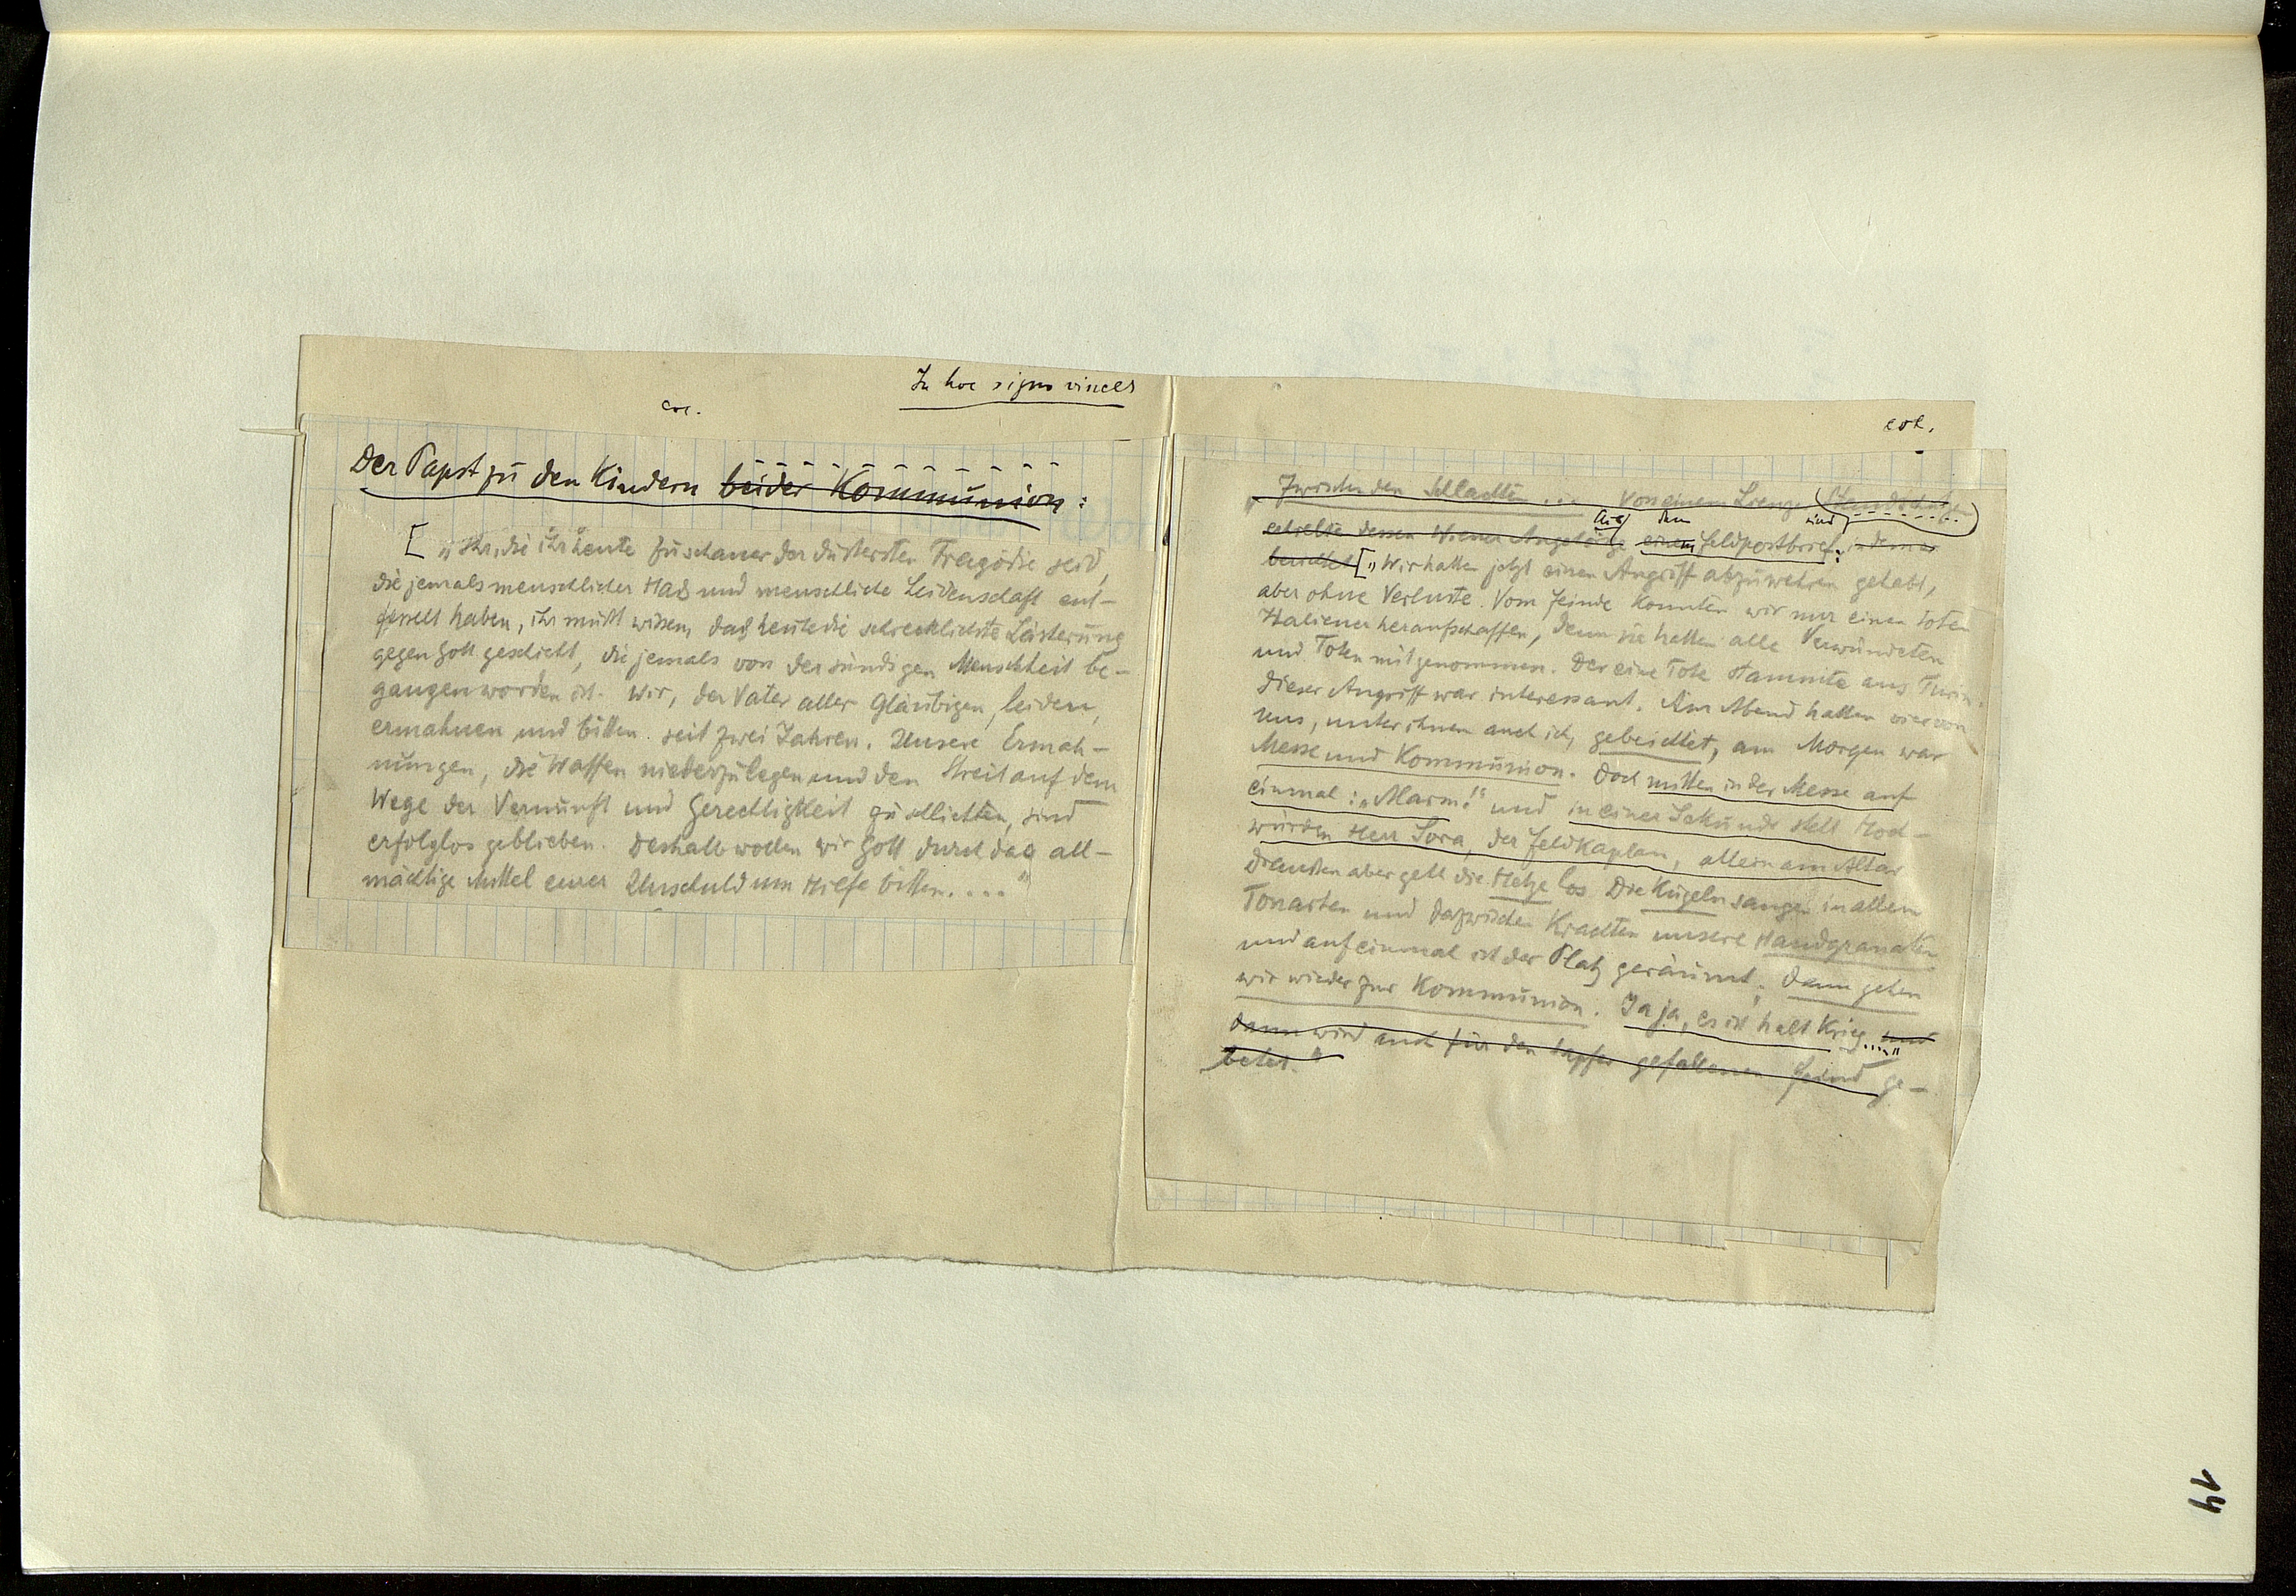 In hoc signo vinces
Der Papst zu den Kindern beider Kommunion:
[ „Ihr, die ihr heute Zuschauer der düstersten Tragödie seid,
die jemals menschlicher Haß und menschliche Leidenschaft ent-
fesselt haben, ihr müßt wissen, daß heute die schrecklichste Lästerung
gegen Gott geschieht, die jemals von der sündigen Menschheit be-
gangen worden ist. Wir, der Vater aller Gläubigen, leiden,
ermahnen und bitten seit zwei Jahren. Unsere Ermah-
nungen, die Waffen niederzulegen und den Streit auf dem
Wege der Vernunft und Gerechtigkeit zu schlichten, sind
erfolglos geblieben. Deshalb wollen wir Gott durch das all-
mächtige Mittel eurer Unschuld um Hilfe bitten. . . .“
Zwischen den Schlachten ... Von einem Lienzer Standschützen
erhielten dessen Wiener Angehörige Aus einem dem Feldpostbrief: in dem er
berichtet [„Wir hatten jetzt einen Angriff abzuwehren gehabt,
aber ohne Verluste. Vom Feinde konnten wir nur einen toten
Italiener heraufschaffen, denn sie hatten alle Verwundeten
und Toten mitgenommen. Der eine Tote stammte aus Turin.
Dieser Angriff war interessant. Am Abend hatten vier von
uns, unter ihnen auch ich, gebeichtet, am Morgen war
Messe und Kommunion. Doch mitten in der Messe auf
einmal: „Alarm!“ und in einer Sekunde steht Hoch-
würden Herr Sora, der Feldkaplan, allein am Altar
Draußen aber geht die Hetze los Die Kugeln sangen in allen
Tonarten und dazwischen krachten unsere Handgranaten
und auf einmal ist der Platz geräumt. Dann gehen
wir wieder zur Kommunion. Ja ja, es ist halt Krieg ....“ und
dann wird auch für den tapfer gefallenen Feind ge-
betet.“
14